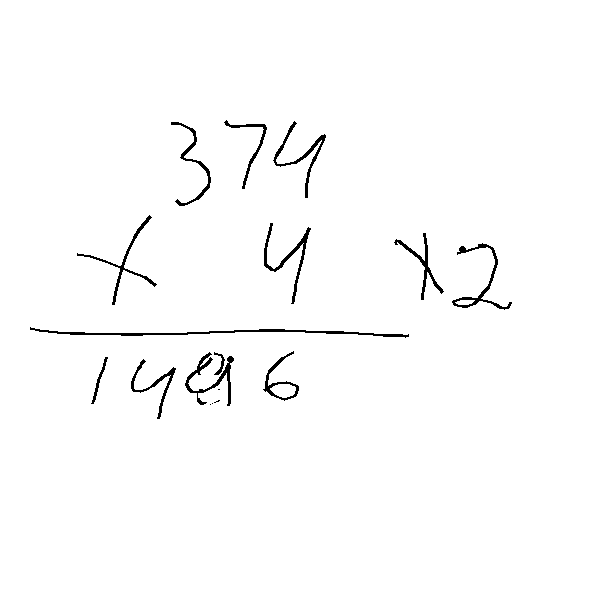 374
× 4 ×2
1496